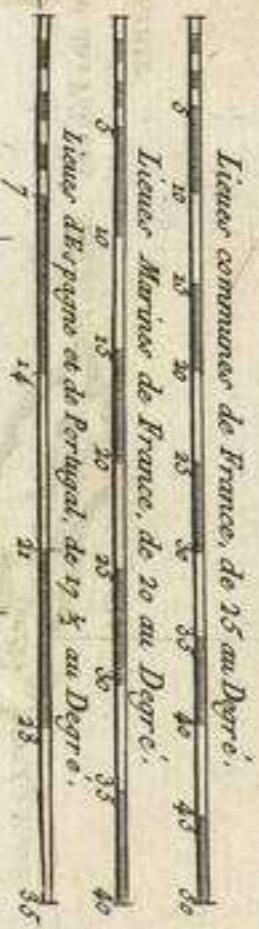 Lieues communes de France, de 25 au Degré.
5 10 15 20 25 30 35 40 45 50
Lieues Marines de France, de 20 au Degré.
5 10 15 20 25 30 35 40
Lieues d'Espagne et de Portugal, de 17 ½ au Degré.
7 14 21 28 35